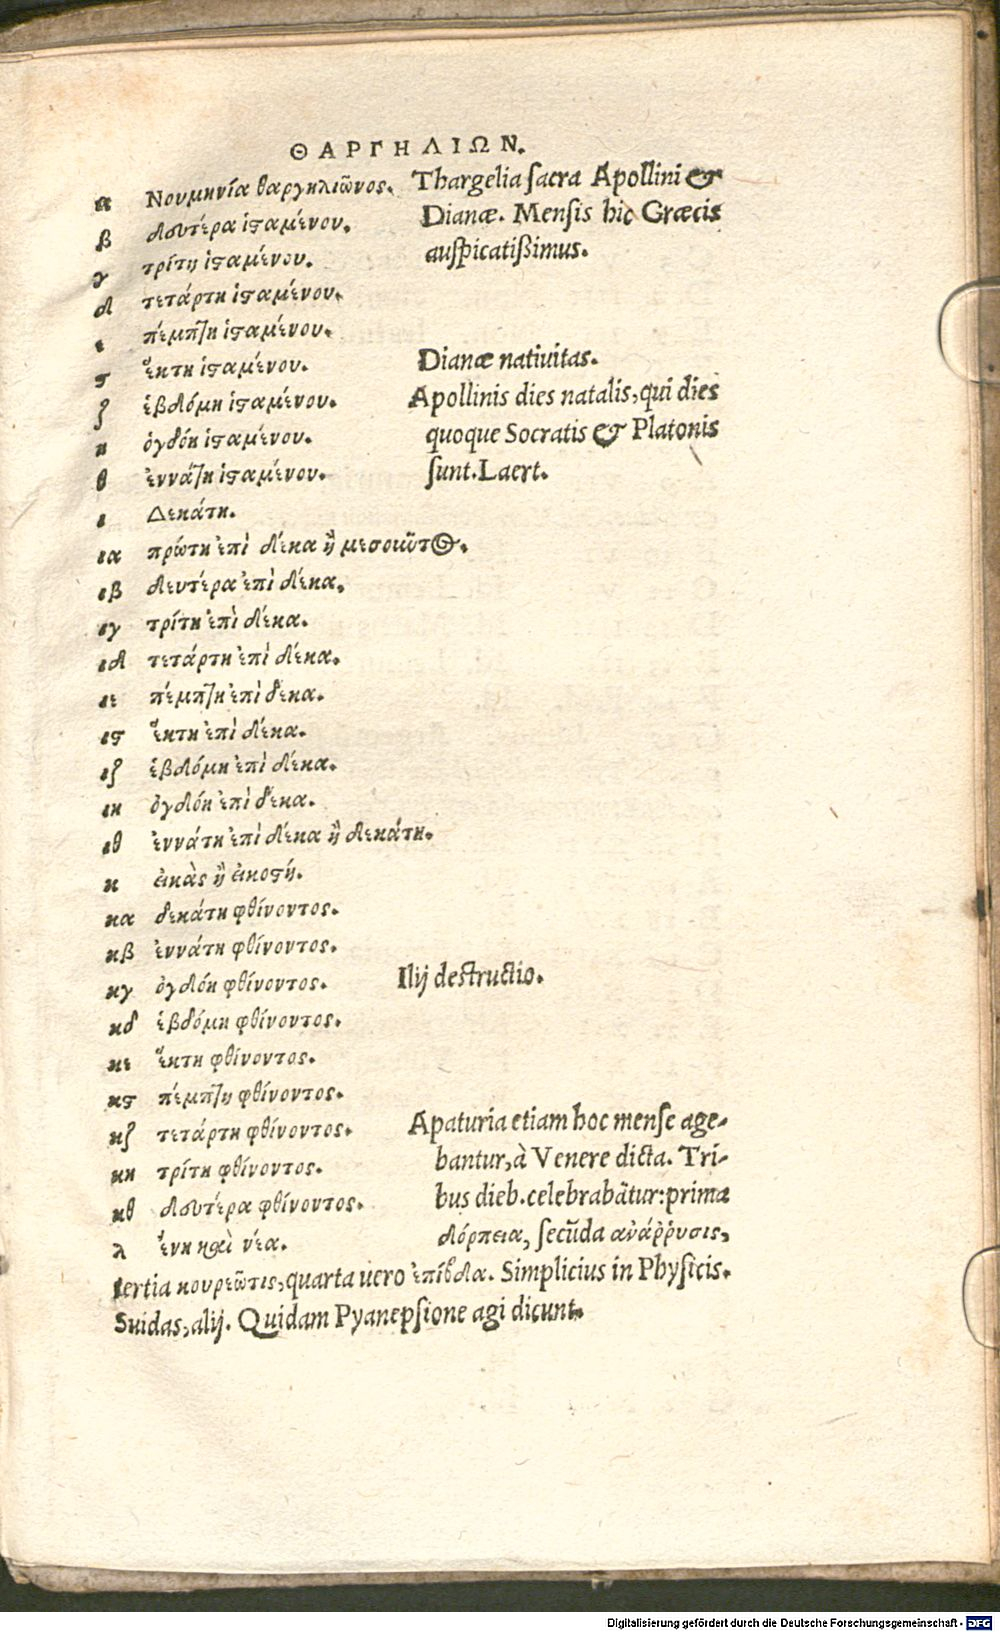 ΘΑΡΓΗΛΙΩΝ.
α Νουμηνία θαργηλιῶνος. Thargelia sacra Apollini &
β δευτέρα ἱσταμένου. Dianæ. Mensis hic Græcis
γ τρίτη ἱσταμένου. auspicatißimus.
δ τετάρτη ἱσταμένου.
ε πέμπτη ἱσταμένου.
ϛ ἕκτη ἱσταμένου. Dianæ nativitas.
ζ ἑβδόμη ἱσταμένου. Apollinis dies natalis, qui dies
η ὀγδόη ἱσταμένου. quoque Socratis & Platonis
θ ἐννάτη ἱσταμένου. sunt. Laert.
ι Δεκάτη.
ια πρώτη ἐπὶ δέκα ἢ μεσοιοῦτος.
ιβ δευτέρα ἐπὶ δέκα.
ιγ τρίτη ἐπὶ δέκα.
ιδ τετάρτη ἐπὶ δέκα.
ιε πέμπτη ἐπὶ δέκα.
ιϛ ἕκτη ἐπὶ δέκα.
ιζ ἑβδόμη ἐπὶ δέκα.
ιη ὀγδόη ἐπὶ δέκα.
ιθ ἐννάτη ἐπὶ δέκα ἢ δεκάτη.
κ εἰκὰς ἢ εἰκοστή.
κα δεκάτη φθίνοντος.
κβ ἐννάτη φθίνοντος.
κγ ὀγδόη φθίνοντος. Ilij destructio.
κδ ἑβδόμη φθίνοντος.
κε ἕκτη φθίνοντος.
κϛ πέμπτη φθίνοντος.
κζ τετάρτη φθίνοντος. Apaturia etiam hoc mense age-
κη τρίτη φθίνοντος. bantur, à Venere dicta. Tri-
κθ δευτέρα φθίνοντος. bus dieb. celebrabãtur: prima
λ ἕνη καὶ νέα. δόρπεια, secũda ἀνάῤῥυσις,
tertia κουρεῶτις, quarta uero ἐπίβδα. Simplicius in Physicis.
Suidas, alij. Quidam Pyanepsione agi dicunt.
Digitalisierung gefördert durch die Deutsche Forschungsgemeinschaft - DFG